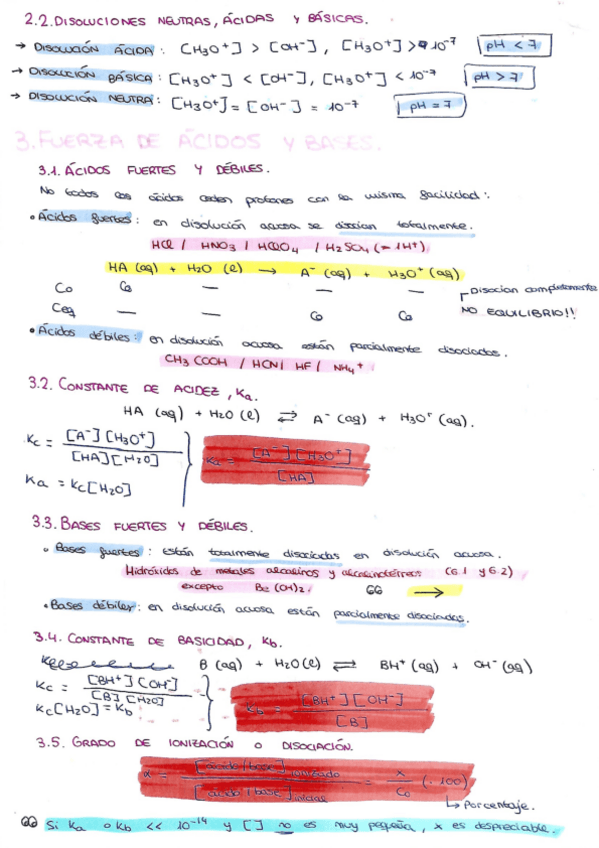 2.2. DISOLUCIONES NEUTRAS, ÁCIDAS Y BÁSICAS.
→ DISOLUCIÓN ÁCIDA: [H3O+] > [OH-], [H3O+] > 10-7 pH < 7
→ DISOLUCIÓN BÁSICA: [H3O+] < [OH-], [H3O+] < 10-7 pH > 7
→ DISOLUCIÓN NEUTRA: [H3O+] = [OH-] = 10-7 pH = 7
3. FUERZA DE ÁCIDOS Y BASES.
3.1. ÁCIDOS FUERTES Y DÉBILES.
No todos los ácidos ceden protones con la misma facilidad:
• Ácidos fuertes: en disolución acuosa se disocian totalmente.
HCl / HNO3 / HClO4 / H2SO4 (= 1H+)
HA (aq) + H2O (l) → A- (aq) + H3O+ (aq)
Co Co — — —
Ceq — — Co Co
Disocian completamente
NO EQUILIBRIO!!
• Ácidos débiles: en disolución acuosa están parcialmente disociados.
CH3COOH / HCN / HF / NH4+
3.2. CONSTANTE DE ACIDEZ, Ka.
HA (aq) + H2O (l) ⇄ A- (aq) + H3O+ (aq).
Kc = [A-][H3O+] / [HA][H2O]
Ka = Kc[H2O]
Ka = [A-][H3O+] / [HA]
3.3. BASES FUERTES Y DÉBILES.
• Bases fuertes: Están totalmente disociadas en disolución acuosa.
Hidróxidos de metales alcalinos y alcalinotérreos (G1 y G2)
excepto Be(OH)2. →
• Bases débiles: en disolución acuosa están parcialmente disociadas.
3.4. CONSTANTE DE BASICIDAD, Kb.
B (aq) + H2O (l) ⇄ BH+ (aq) + OH- (aq)
Kc = [BH+][OH-] / [B][H2O]
Kc[H2O] = Kb
Kb = [BH+][OH-] / [B]
3.5. GRADO DE IONIZACIÓN O DISOCIACIÓN.
α = [ácido/base] ionizado / [ácido/base] inicial = x / Co (·100)
↳ Porcentaje.
Si Ka o Kb << 10-14 y [ ] no es muy pequeña, x es despreciable.